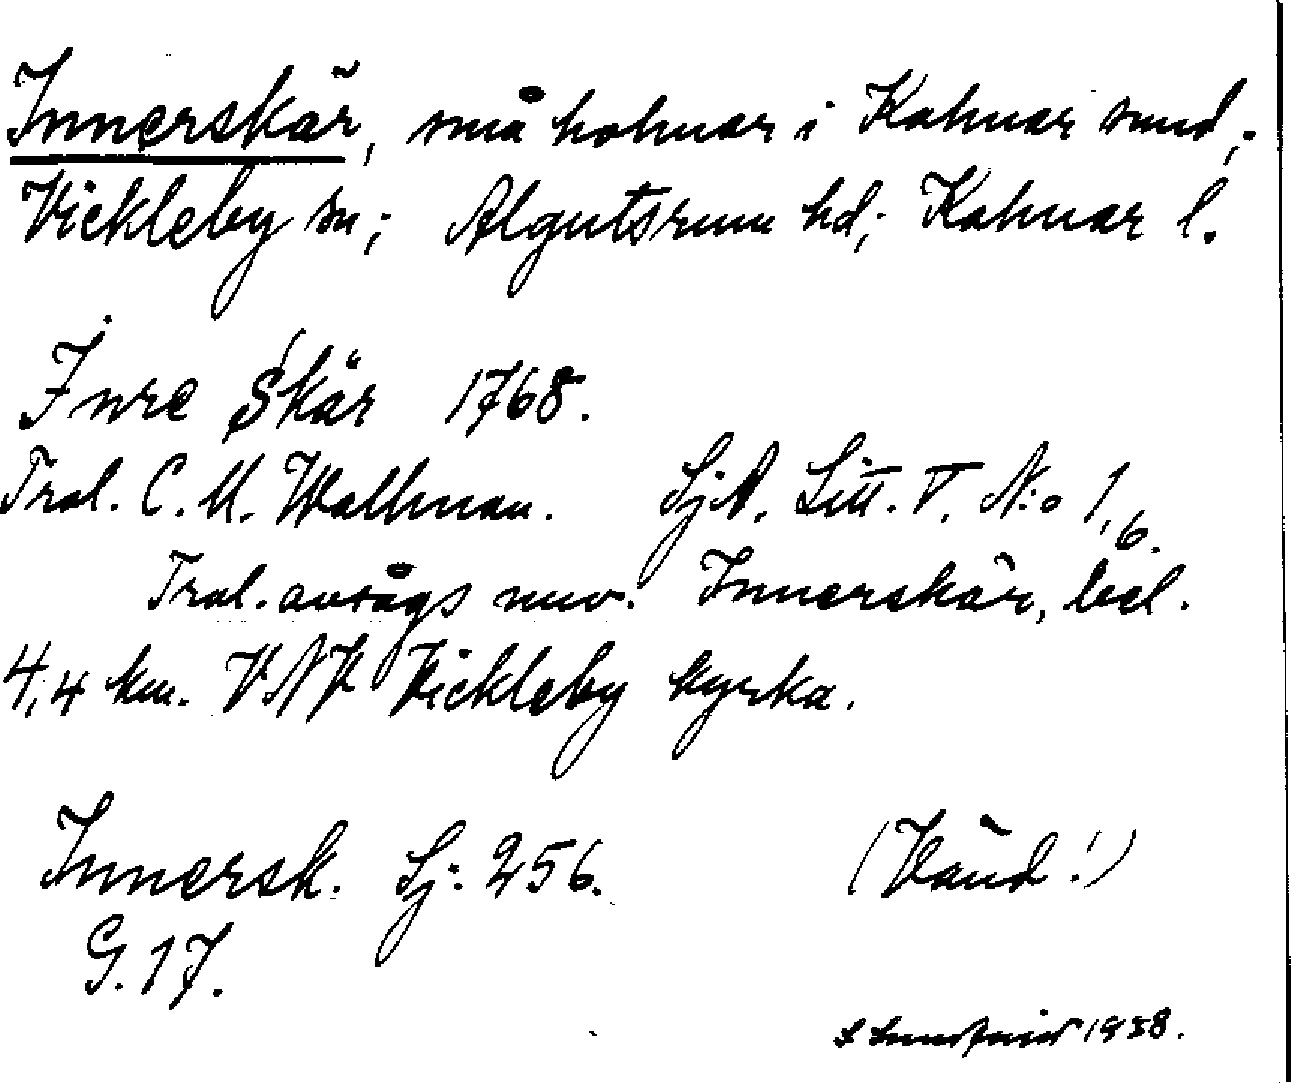 Innerskär, små holmar i Kalmar sund;
Vickleby sn; Algutsrum hd; Kalmar l.
Inre Skär 1768.
Trol. C. M. Wallman. SjA. Litt. V. N:o 1,6.
Trol. avsågs nuv. Innerskär, bel.
4,4 km. VNV Vickleby kyrka.
Innersk. Sj: 256. (Vänd!)
G. 17.
1938.